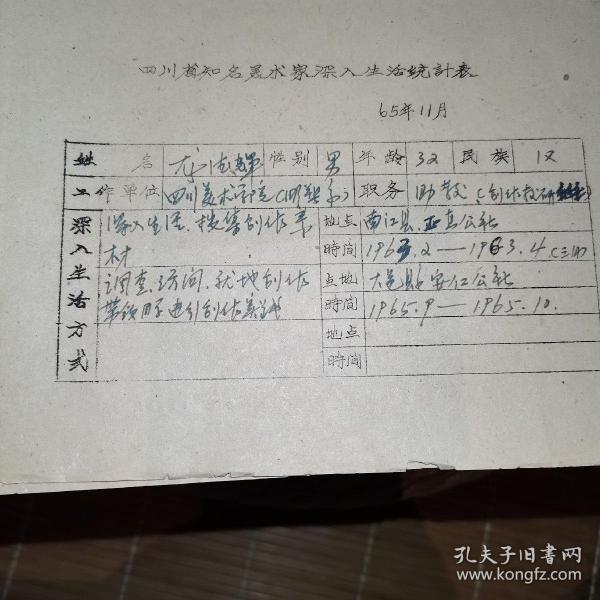 四川省知名美术家深入生活统計表
65年11月
姓名 性别 男 年龄 32 民族 汉
工作单位 四川美术学院(雕塑系) 职务 助教(创作教研
深入生活方式
深入生活、搜集创作素材
地点 南江县
時間 1963.2——1963.4
调查、访问、就地创作
点地 大邑县安仁公社
時間 1965.9——1965.10.
地点
時間
孔夫子旧书网
www.kongfz.com